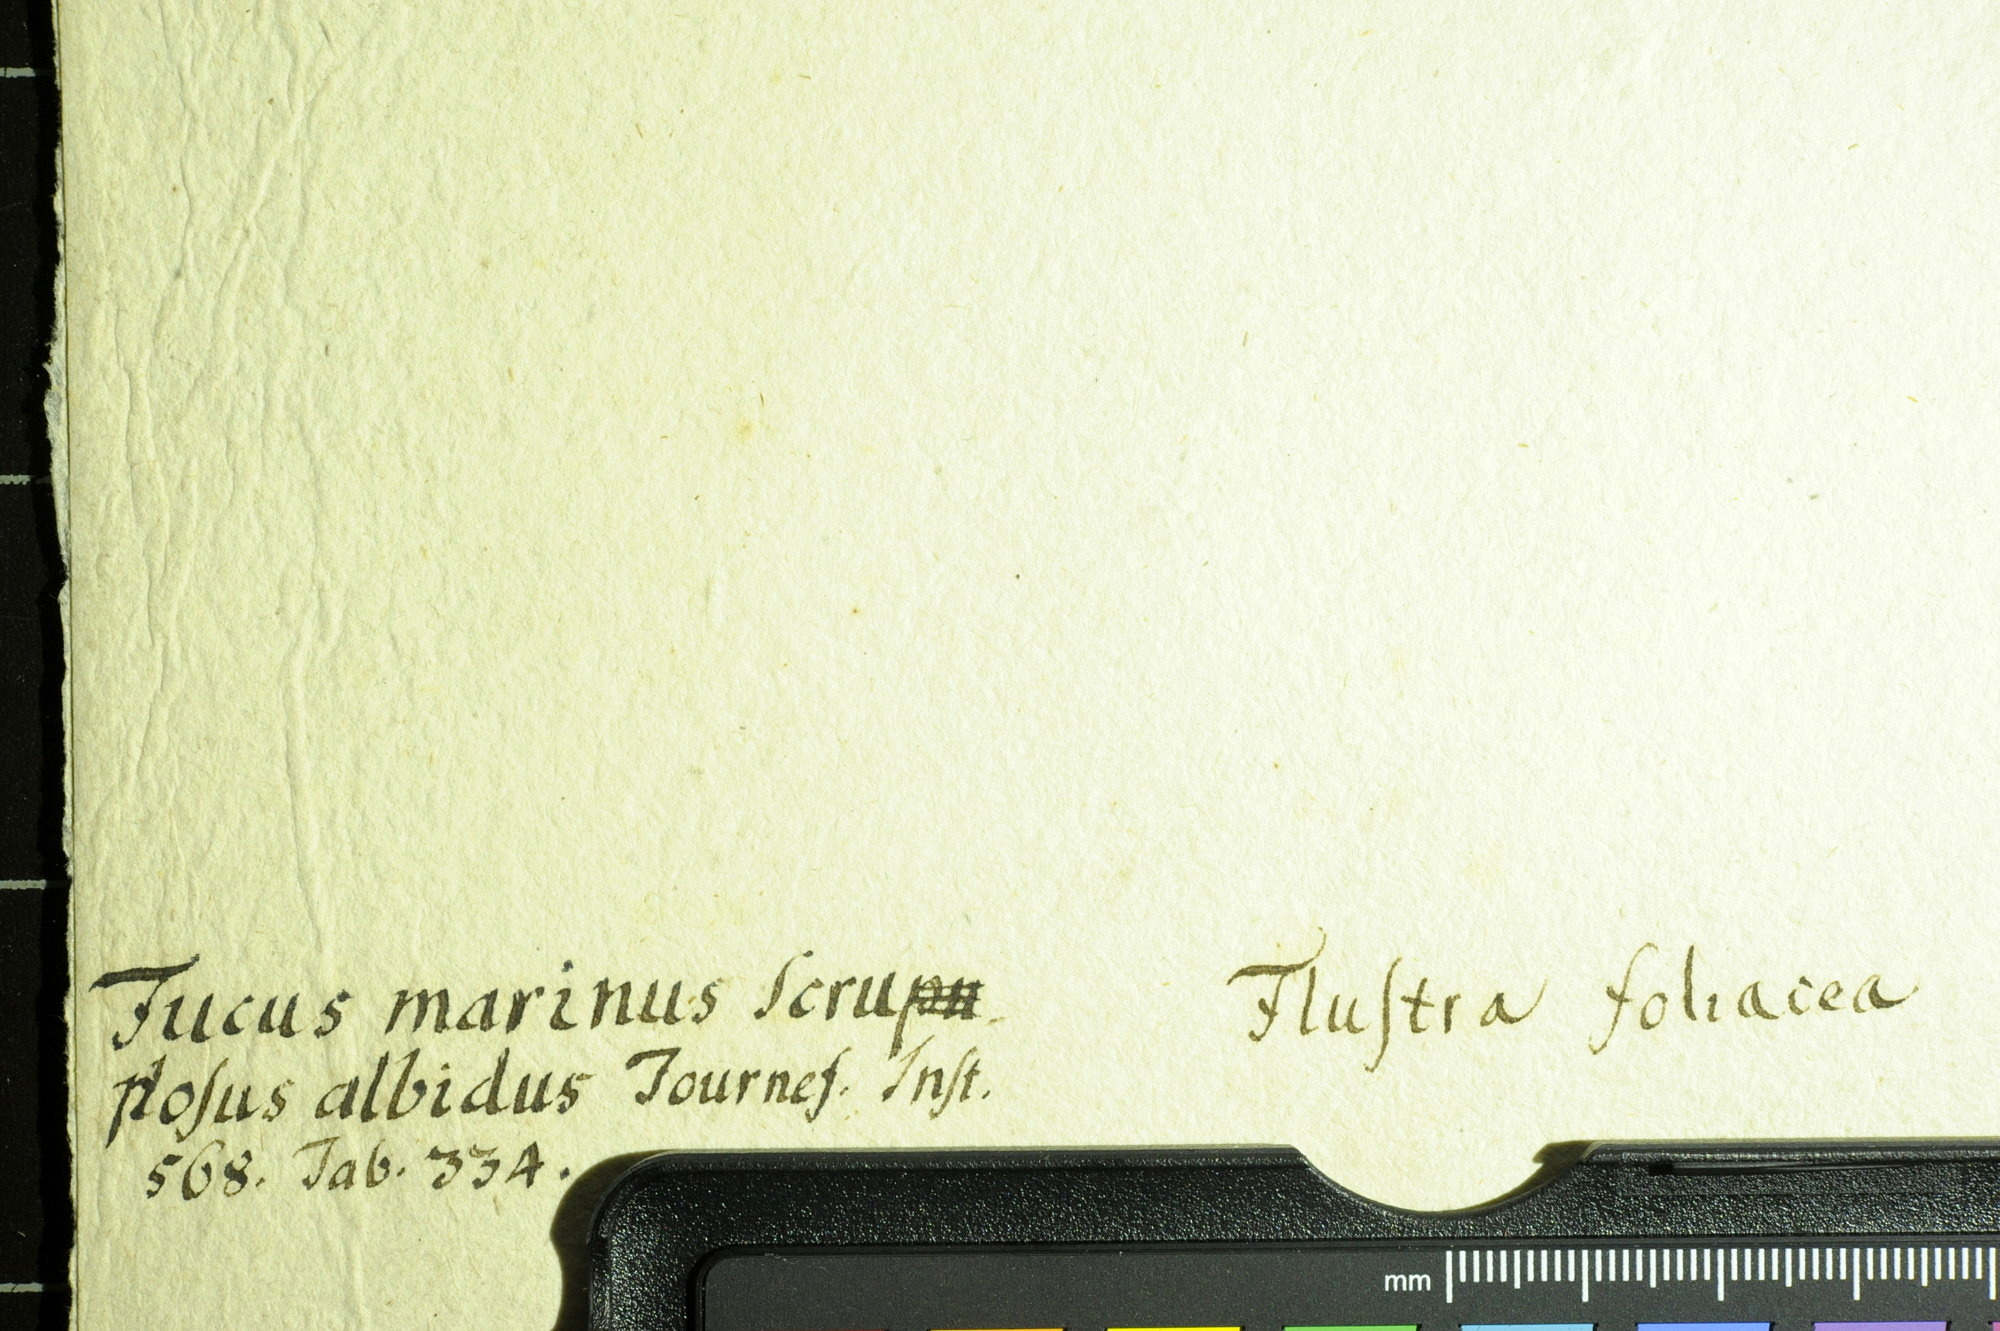 Fucus marinus Scrupu
plosus albidus Tournef. Inst.
568. Tab. 334.
Flustra foliacea
mm